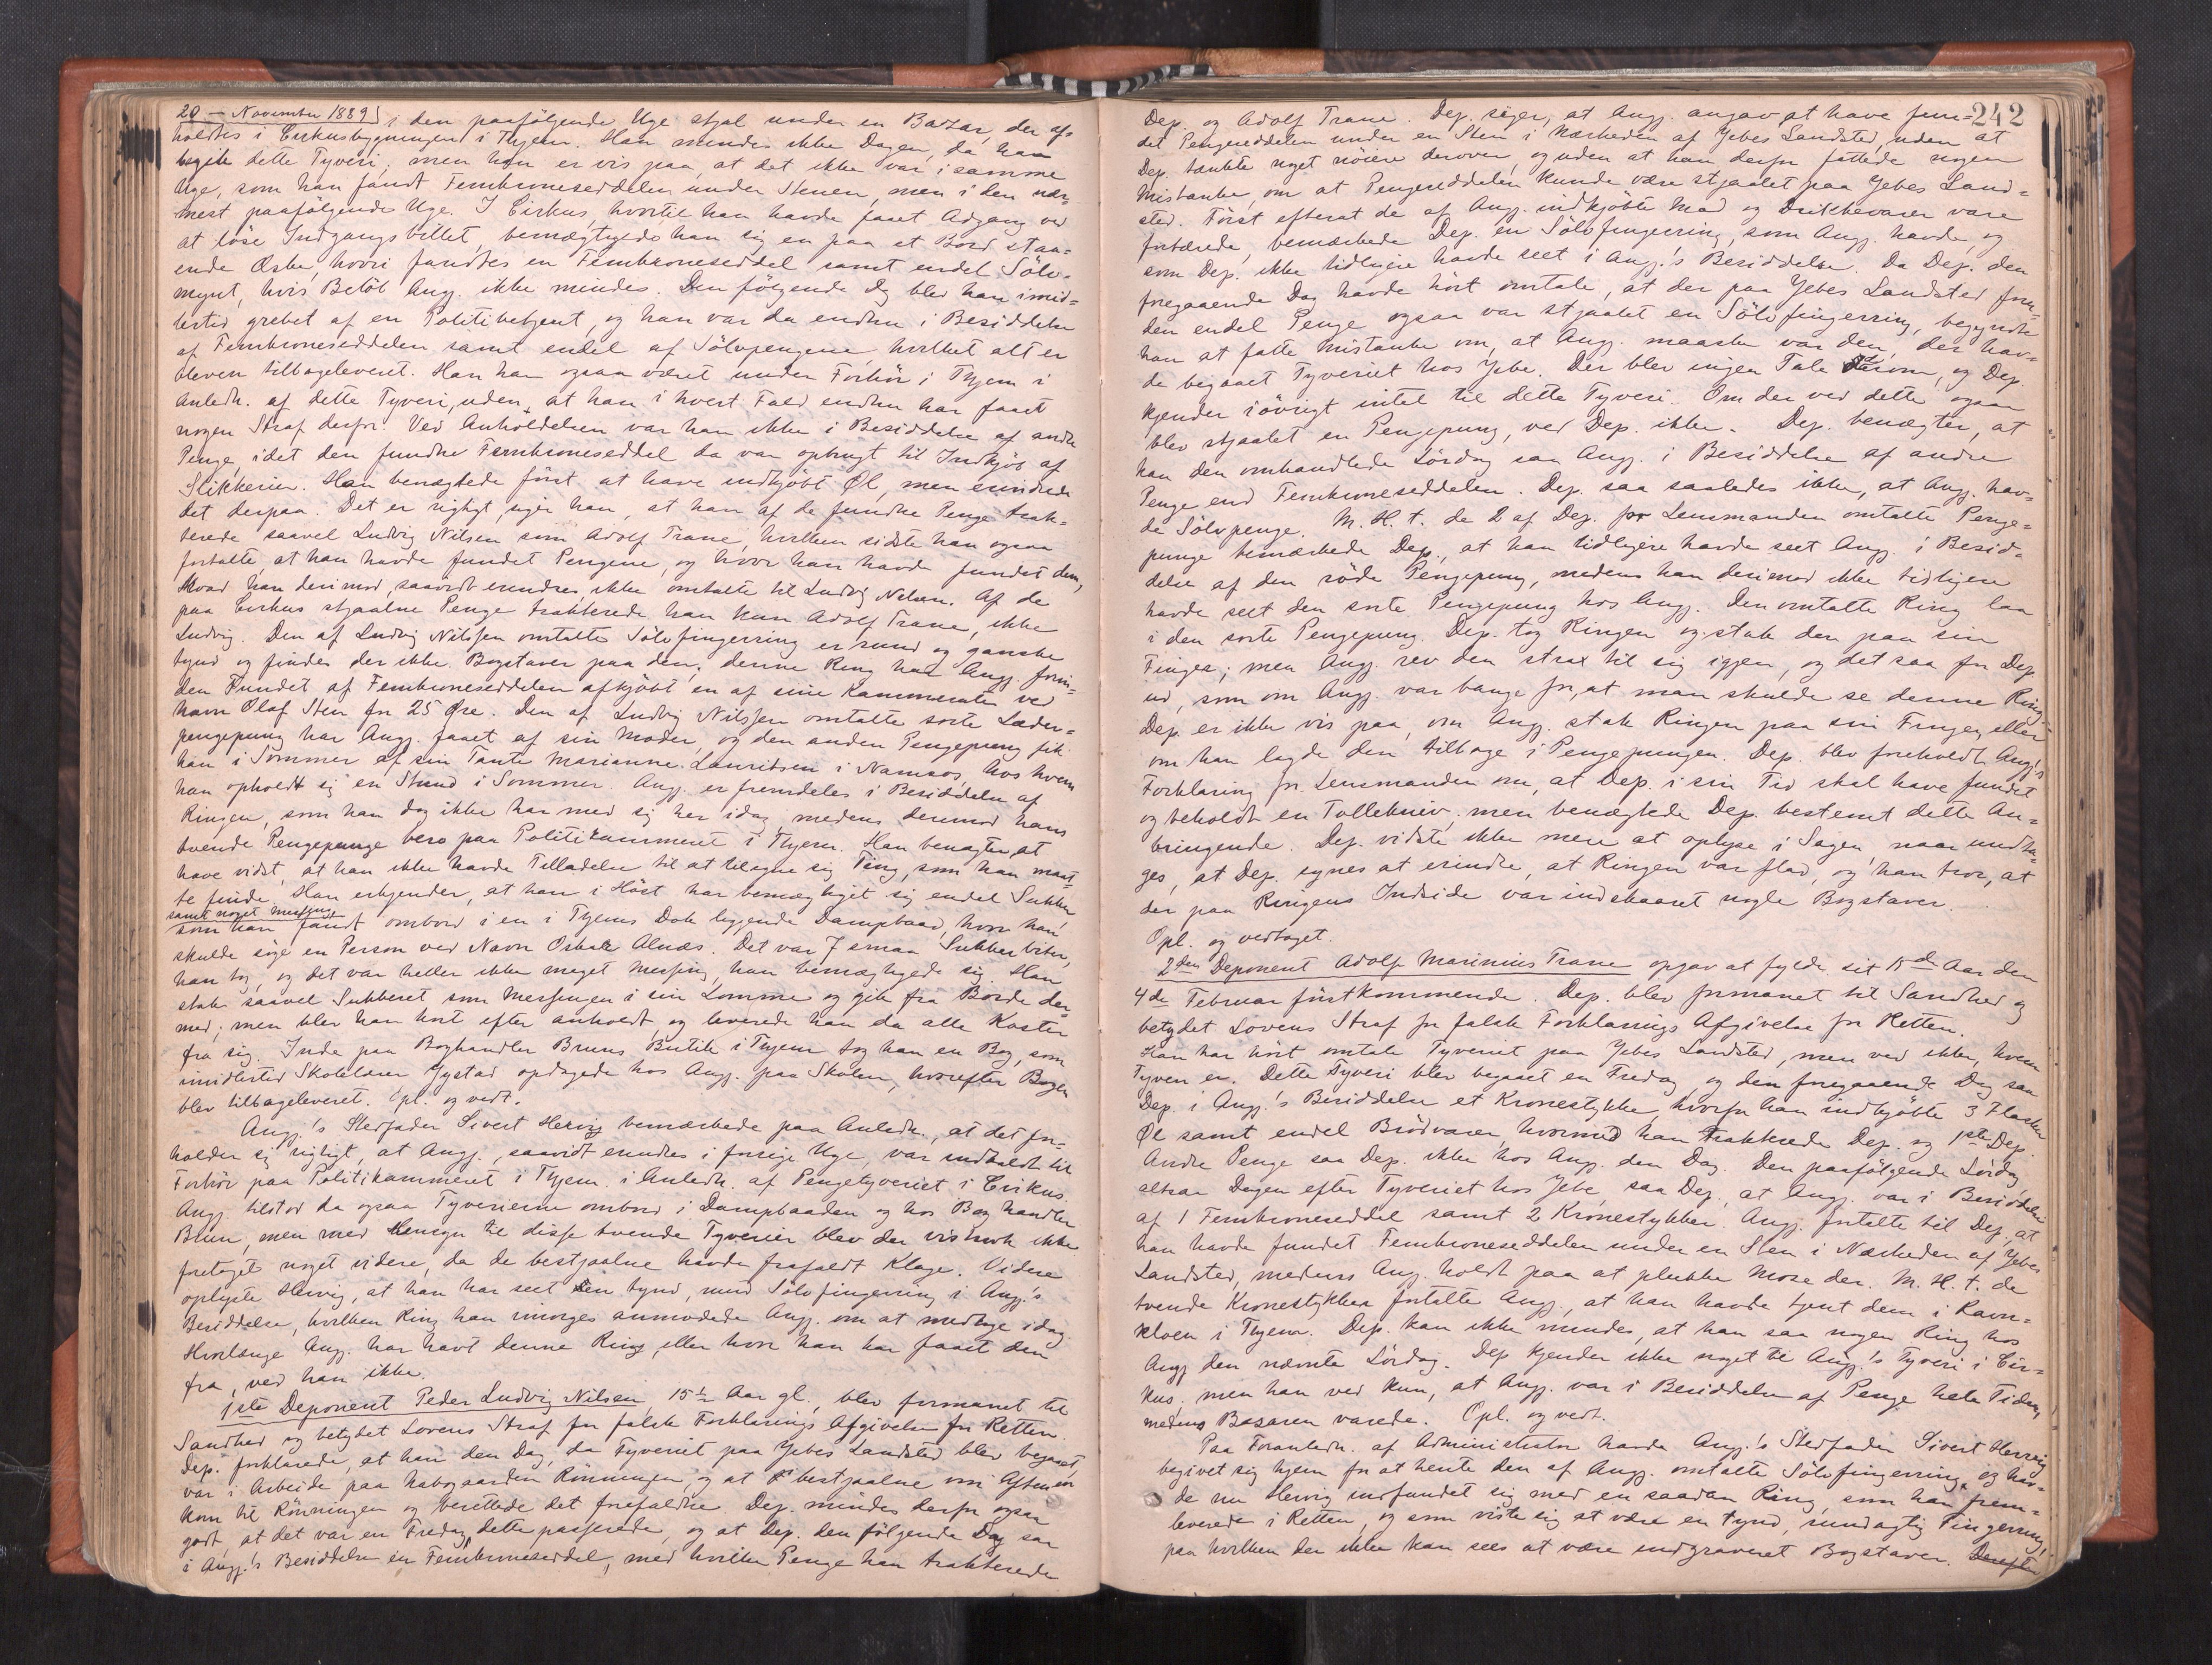 20 - November 1889
i den paafölgende Uge stjal under en Bazar, der af-
holdtes i Cirkusbygningen i Thjem. Han mindes ikke Dagen, da han
begik dette Tyveri, men han er vis paa, at det ikke var i samme
Uge, som han fandt Femkroneseddelen under Stenen, men i den nær-
mest paafölgende Uge. I Cirkus, hvortil han havde faaet Adgang ved
at löse Indgangsbillet, bemægtigede han sig en paa et Bord staa-
ende Æske, hvori fandtes en Femkroneseddel samt endel Sölv-
mynt, hvis Belöb Ang. ikke mindes. Den fölgende Dag blev han imid-
lertid grebet af en Politibetjent, og han var da endnu i Besiddelse
af Femkroneseddelen samt endel af Sölvpengene, hvilket alt er
bleven tilbageleveret. Han har ogsaa været under Forhör i Thjem i
Anledn. af dette Tyveri, uden at han i hvert Fald endnu har faaet
nogen Straf derfor. Ved Anholdelsen var han ikke i Besiddelse af andre
Penge, idet den fundne Femkroneseddel da var opbrugt til Indkjöb af
Slikkerier. Han benægtede först at have indkjöbt Øl, men erindrede
det derpaa. Det er rigtigt, siger han, at han af de fundne Penge trak-
terede saavel Ludvig Nilsen som Adolf Trane, hvilken sidste han ogsaa
fortalte, at han havde fundet Pengene, og hvor han havde fundet dem,
Hvad han derimod, saavidt erindres, ikke omtalte til Ludvig Nilsen. Af de
paa Cirkus stjaalne Penge trakterede han kun Adolf Trane, ikke
Ludvig. Den af Ludvig Nilssen omtalte Sölvfingerring er rund og ganske
tynd og findes der ikke Bogstaver paa den; denne Ring har Angj. forin-
den Fundet af Femkroneseddelen afkjöbt en af sine Kammerater ved
Navn Olaf Sten for 25 Øre. Den af Ludvig Nilssen omtalte sorte Læder-
pengepung har Angj. faaet af sin Moder, og den anden Pengepung fik
han i Sommer af sin Tante Marianne Lauritsen i Namsos, hos hvem
han opholdt sig en Stund i Sommer. Angj. er fremdeles i Besiddelse af
Ringen, som han dog ikke har med sig her idag, medens derimod hans
tvende Pengepunge bero paa Politikammeret i Thjem. Han benægter at
have vidst, at han ikke havde Tilladelse til at tilegne sig Ting, som han maat-
te finde. Han erkjender, at han i Höst har bemægtiget sig endel Sukker
samt noget Messing
som han fandt ombord i en i Thjems Dok liggende Dampbaad, hvor han
skulde söge en Person ved Navn Oskar Alnæs. Det var 7 smaa Sukkerbiter,
han tog, og det var heller ikke meget Messing, han bemægtigede sig. Han
stak saavel Sukkeret som Messingen i sin Lomme og gik fra Borde der-
med; men blev han kort efter anholdt, og leverede han da alle Koster
fra sig. Inde paa Boghandler Bruns Butik i Thjem tog han en Bog, som
imidlertid Skolelærer Gystad opdagede hos Angj. paa Skolen, hvorefter Bogen
blev tilbageleveret. Opl. og vedt.
Angj.'s Stedfader Sivert Hervig bemærkede paa Anledn., at det for-
holder sig rigtigt, at Angj., saavidt erindres i forrige Uge, var indkaldt til
Forhör paa Politikammeret i Thjem i Anledn. af Pengetyveriet i Cirkus.
Angj. tilstod da ogsaa Tyverierne ombord i Dampbaaden og hos Boghandler
Brun, men med Hensyn til disse tvende Tyverier blev der vistnok ikke
foretaget noget videre, da de bestjaalne havde frafaldt Klage. Videre
oplyste Hervig, at han har seet den tynd, rund Sölvfingerring i Angj.'s
Besiddelse, hvilken Ring han imorges anmodede Angj. om at medtage idag.
Hvorlænge Angj. har havt denne Ring, eller hvor han har faaet den
fra, ved han ikke.
1ste Deponent Peder Ludvig Nilsen, 15½ Aar gl., blev formanet til
Sandhed og betydet Lovens Straf for falsk Forklarings Afgivelse for Retten.
Dep. forklarede, at han den Dag, da Tyveriet paa Jebes Landsted blev begaaet,
var i Arbeide paa Nabogaarden Rönningen, og at bestjaalne om Aftenen
kom til Rönningen og berettede det forefaldne. Dep. mindes derfor ogsaa
godt, at det var en Fredag, dette passerede, og at Dep. den fölgende Dag saa
i Angj.'s Besiddelse en Femkroneseddel, med hvilke Penge han trakterede
242
Dep. og Adolf Trane. Dep. siger, at Angj. angav at have fun-
det Pengeseddelen under en Sten i Nærheden af Jebes Landsted, uden at
Dep. tænkte noget nöiere derover, og uden at han derfor fattede nogen
Mistanke om at Pengeseddelen kunde være stjaalet paa Jebes Land-
sted. Först efterat de af Angj. indkjöbte Mad og Drikkevarer vare
fortærede, bemærkede Dep. en Sölvfingerring, som Angj. havde, og
som Dep. ikke tidligere havde seet i Angj.'s Besiddelse. Da Dep. den
foregaaende Dag havde hört omtale, at der paa Jebes Landsted foru-
den endel Penge ogsaa var stjaalet en Sölvfingerring, begyndte
han at fatte Mistanke om, at Angj. maaske var den, der hav-
de begaaet Tyveriet hos Jebe. Der blev ingen Tale derom, og Dep.
kjender iövrigt intet til dette Tyveri. Om der ved dette ogsaa
blev stjaalet en Pengepung, ved Dep. ikke. Dep. benægter, at
han den omhandlede Lördag saa Angj. i Besiddelse af andre
Penge end Femkroneseddelen. Dep. saa saaledes ikke, at Angj. hav-
de Sölvpenge. M. H. t. de 2 af Dep. for Lensmanden omtalte Penge-
punge bemærkede Dep., at han tidligere havde seet Angj. i Besid-
delse af den röde Pengepung, medens han derimod ikke tidligere
havde seet den sorte Pengepung hos Angj. Den omtalte Ring laa
i den sorte Pengepung. Dep. tog Ringen og stak den paa sin
Finger; men Angj. rev den strax til sig igjen, og det saa for Dep.
ud, som om Angj. var bange for, at man skulde se denne Ring.
Dep. er ikke vis paa, om Angj. stak Ringen paa sin Finger, eller
om han lagde den tilbage i Pengepungen. Dep. blev foreholdt Angj.'s
Forklaring for Lensmanden om, at Dep. i sin Tid skal have fundet
og beholdt en Tollekniv, men benægtede Dep. bestemt dette An-
bringende. Dep. vidste ikke mere at oplyse i Sagen, naar undta-
ges, at Dep. synes at erindre, at Ringen var flad, og han tror, at
der paa Ringens Indside var indskaaret nogle Bogstaver.
Opl. og vedtaget.
2den Deponent Adolf Marinius Trane opgav at fylde sit 15de Aar den
4de Februar förstkommende. Dep. blev formanet til Sandhed og
betydet Lovens Straf for falsk Forklarings Afgivelse for Retten.
Han har hört omtale Tyveriet paa Jebes Landsted, men ved ikke, hvem
Tyven er. Dette Tyveri blev begaaet en Fredag, og den foregaaende Dag saa
Dep. i Angj.'s Besiddelse et Kronestykke, hvorfor han indkjöbte 3 Flasker
Øl samt endel Brödvarer, hvormed han trakterede Dep. og 1ste Dep.
Andre Penge saa Dep. ikke hos Angj. den Dag. Den paafölgende Lördag,
altsaa Dagen efter Tyveriet hos Jebe, saa Dep., at Angj. var i Besiddelse
af 1 Femkroneseddel samt 2 Kronestykker. Angj. fortalte til Dep. at
han havde fundet Femkroneseddelen under en Sten i Nærheden af Jebes
Landsted, medens Ang. holdt paa at plukke Mose der. M. H. t. de
tvende Kronestykker fortalte Angj., at han havde tjent dem i Ravn-
kloen i Thjem. Dep. kan ikke mindes, at han saa nogen Ring hos
Angj. den nævnte Lördag. Dep. kjender ikke noget til Angj.'s Tyveri i Cir-
kus, men han ved kun, at Angj. var i Besiddelse af Penge hele Tiden,
medens Basaren varede. Opl. og vedt.
Paa Foranledn. af Administrator havde Angj.'s Stedfader Sivert Hervig
begivet sig hjem for at hente den af Angj. omtalte Sölvfingerring, og hav-
de nu Hervig indfundet sig med en saadan Ring, som han frem-
leverede i Retten, og som viste sig at være en tynd, rundagtig Fingerring,
paa hvilken der ikke kan sees at være indgraveret Bogstaver. Derefter